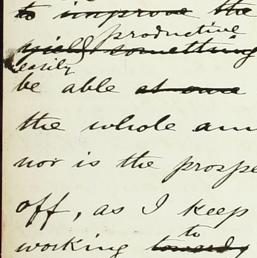 to improve the
productive
yield something
easily
be able at once
the whole am
nor is the prospe
off, as I keep
to
working towards